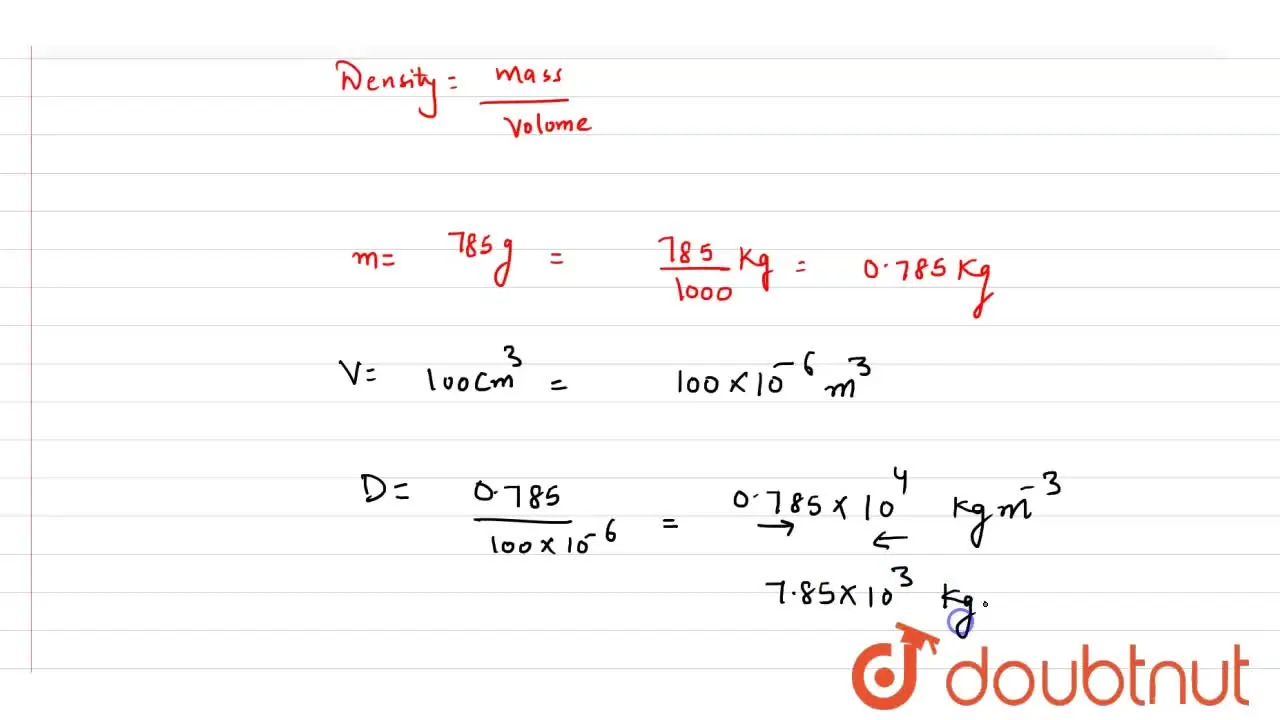 Density = mass / Volome
m = 785 g = 785/1000 Kg = 0.785 Kg
V = 100 cm³ = 100 × 10⁻⁶ m³
D = 0.785 / 100 × 10⁻⁶ = 0.785 × 10⁴ Kg m⁻³
→ ←
7.85 × 10³ Kg.
doubtnut